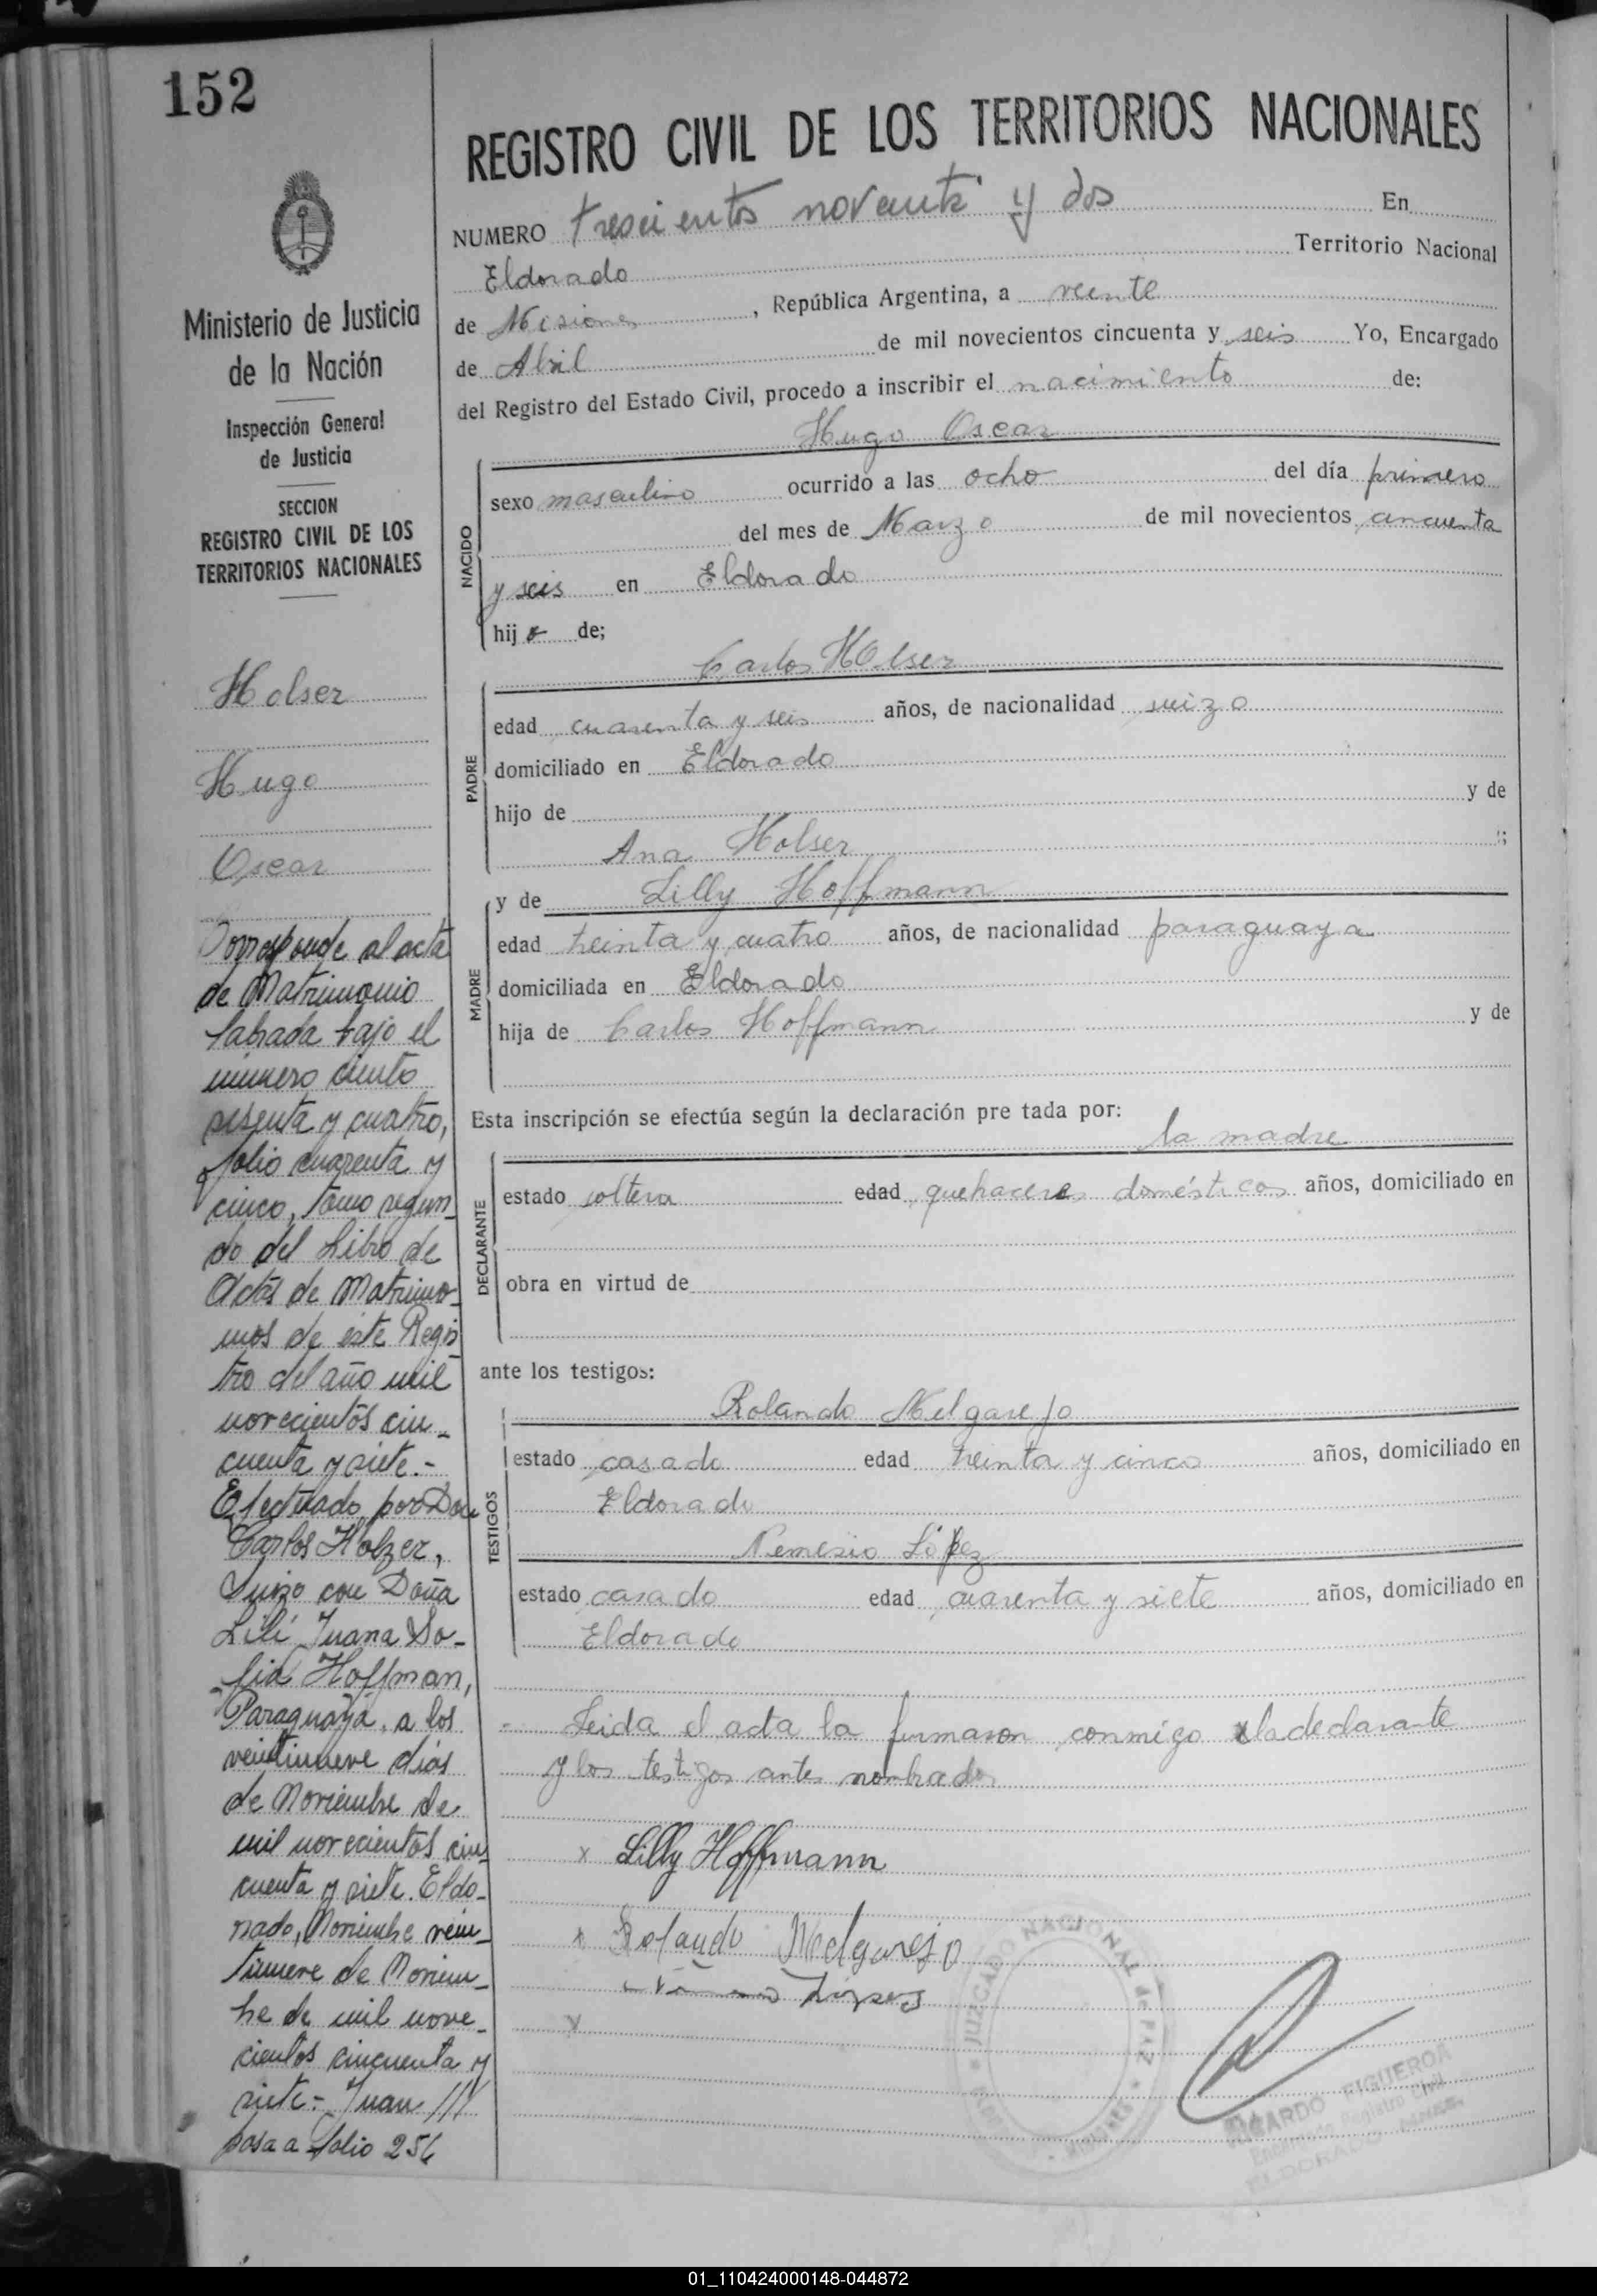 152
Ministerio de Justicia
de la Nación
Inspección General
de Justicia
SECCION
REGISTRO CIVIL DE LOS
TERRITORIOS NACIONALES
Holser
Hugo
Oscar
Corresponde al acta
de Matrimonio
labrada bajo el
número ciento
sesenta y cuatro,
folio cuarenta y
cinco, tomo segun-
do del Libro de
Actas de Matrimo-
nios de este Regis-
tro del año mil
novecientos cin-
cuenta y siete.-
Efectuado por Don
Carlos Holzer,
Suizo con Doña
Lili Juana So-
fia Hoffman,
Paraguaya, a los
veintinueve días
de Noviembre de
mil novecientos cin-
cuenta y siete. Eldo-
rado, Noviembre vein-
tinueve de Noviem-
bre de mil nove-
cientos cincuenta y
siete:- Juan ///
pasa a folio 256
REGISTRO CIVIL DE LOS TERRITORIOS NACIONALES
NUMERO trescientos noventa y dos En
Eldorado Territorio Nacional
de Misiones, República Argentina, a veinte
de Abril de mil novecientos cincuenta y seis Yo, Encargado
del Registro del Estado Civil, procedo a inscribir el nacimiento de:
Hugo Oscar
NACIDO
sexo masculino ocurrido a las ocho del día primero
del mes de Marzo de mil novecientos cincuenta
y seis en Eldorado
hijo de;
Carlos Holser
PADRE
edad cuarenta y seis años, de nacionalidad suizo
domiciliado en Eldorado
hijo de y de
Ana Holser ;
y de Lilly Hoffmann
MADRE
edad treinta y cuatro años, de nacionalidad paraguaya
domiciliada en Eldorado
hija de Carlos Hoffmann y de
Esta inscripción se efectúa según la declaración pre tada por:
la madre
DECLARANTE
estado soltera edad quehaceres domésticos años, domiciliado en
obra en virtud de
ante los testigos:
Rolando Melgarejo
TESTIGOS
estado casado edad treinta y cinco años, domiciliado en
Eldorado
Nemesio López
estado casado edad cuarenta y siete años, domiciliado en
Eldorado
Leida el acta la firmaron conmigo la declarante
y los testigos antes nombrados
x Lilly Hoffmann
x Rolando Melgarejo
López
x
JUZGADO NACIONAL de PAZ
RICARDO FIGUEROA
Encargado Registro Civil
ELDORADO
01_110424000148-044872